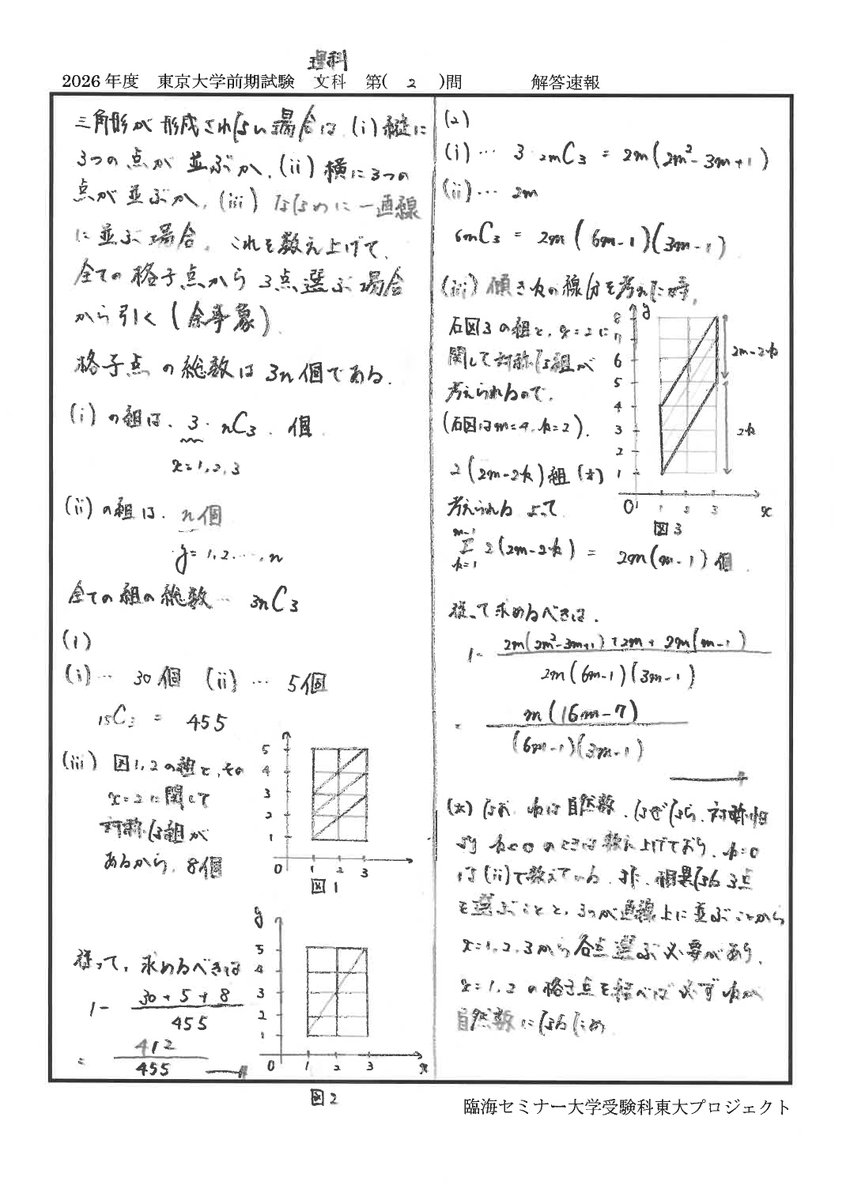 理科
2026年度 東京大学前期試験 文科 第( 2 )問 解答速報
三角形が形成されない場合は、(i)縦に
3つの点が並ぶか、(ii)横に3つの
点が並ぶか、(iii)ななめに一直線
に並ぶ場合。これを数え上げて、
全ての格子点から3点選ぶ場合
から引く(余事象)。
格子点の総数は3n個である。
(i)の組は、3・nC3 個。
x=1,2,3
(ii)の組は、n個
y=1,2,…,n
全ての組の総数… 3nC3
(1)
(i)… 30個 (ii)… 5個
15C3 = 455
(iii) 図1,2の組と、その
x=2に関して
対称な組が
あるから、8個
5
4
3
2
1
0
1 2 3
図1
従って、求めるべきは
1- (30+5+8)/455
= 412/455
y
5
4
3
2
1
0
1 2 3 x
図2
(2)
(i)… 3・2mC3 = 2m(2m²-3m+1)
(ii)… 2m
6mC3 = 2m(6m-1)(3m-1)
(iii) 傾きkの線分を考えた時、
右図3の組と、x=2に
関して対称な組が
考えられるので、
(右図はm=4, k=2)、
2(2m-2k)組(*)
考えられる よって
m-1Σk=1 2(2m-2k) = 2m(m-1)個
y
8
7
6
5
4
3
2
1
0
1 2 3 x
2m-2k
2k
図3
従って求めるべきは、
1- (2m(2m²-3m+1)+2m+2m(m-1))/(2m(6m-1)(3m-1))
= m(16m-7)/((6m-1)(3m-1))
(*) なお、kは自然数、なぜなら、対称性
より k<0のときは数え上げており、k=0
は(ii)で数えている。また、相異なる3点
を選ぶことと、3つが直線上に並ぶことから
x=1,2,3から各点選ぶ必要があり、
x=1,2の格子点を結べば必ずkが
自然数になるため
臨海セミナー大学受験科東大プロジェクト